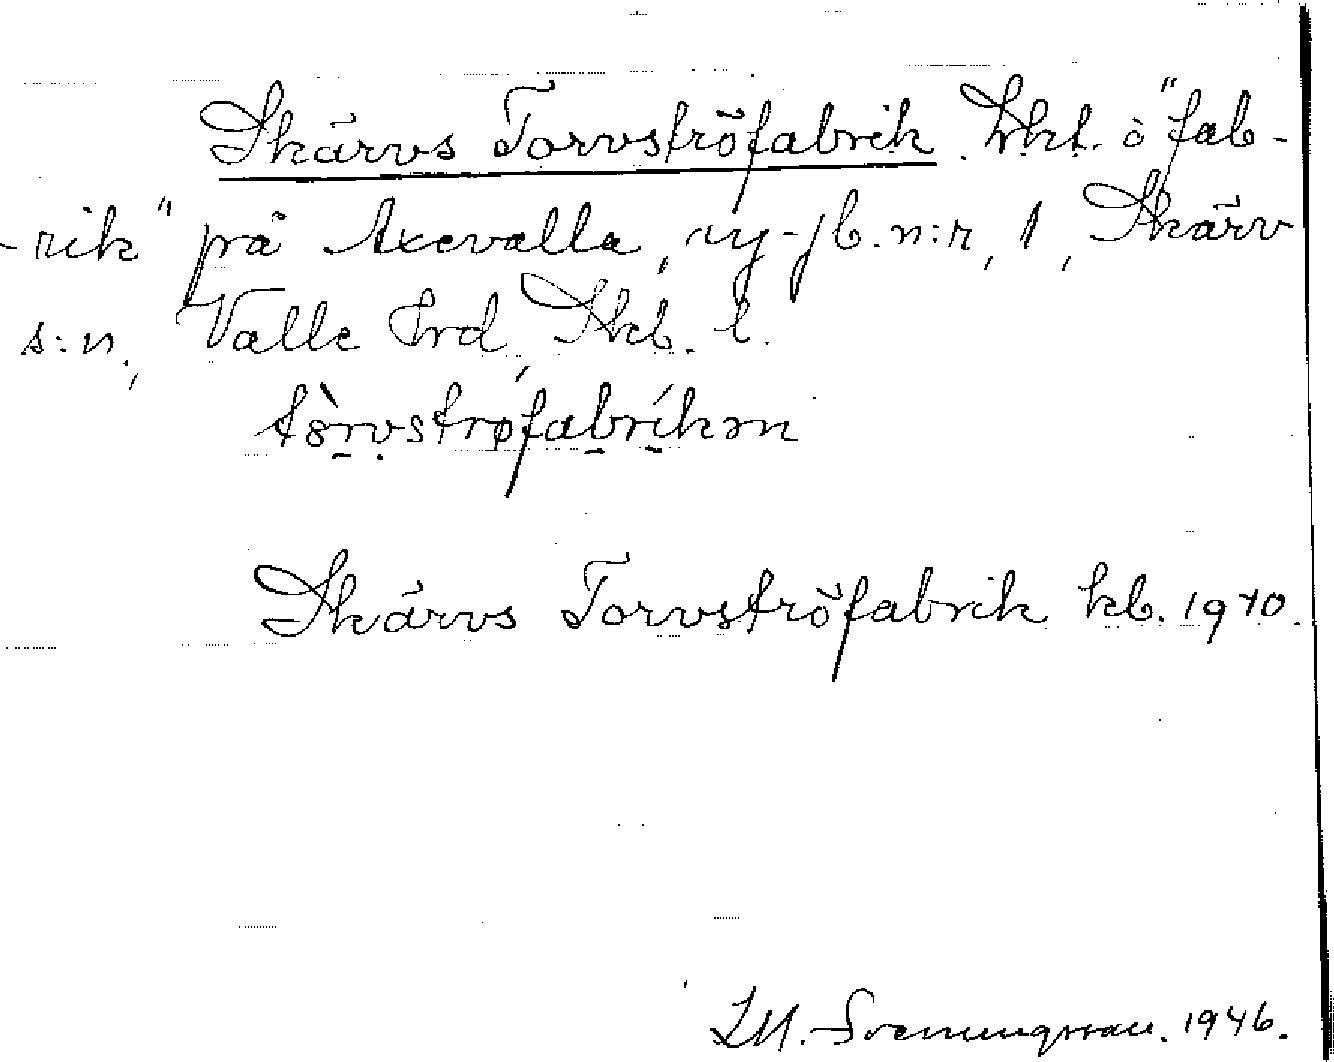 Skärvs Torvströfabrik. Lkl. o "fab-
-rik" på Axevalla, ny-jb. n:r, 1, Skärv
s:n, Valle hrd, Skb. l.
Skärvs Torvströfabrik kb. 1940.
M. Svenungsson. 1946.